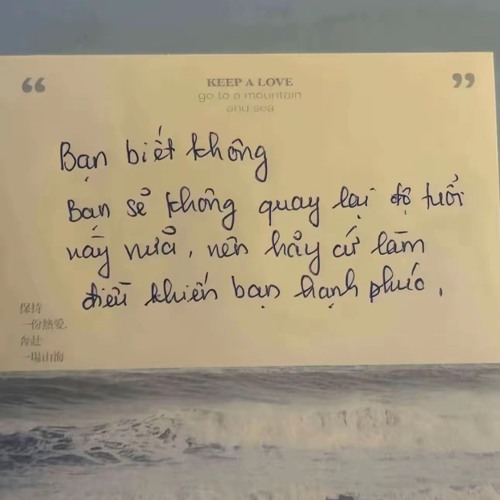 “ ”
KEEP A LOVE
go to a mountain
and sea
Bạn biết không
Bạn sẻ không quay lại độ tuổi
nầy nưã, nên hẩy cứ làm
điều khiến bạn hạnh phúc.
保持
一份熱愛,
奔赴
一場山海